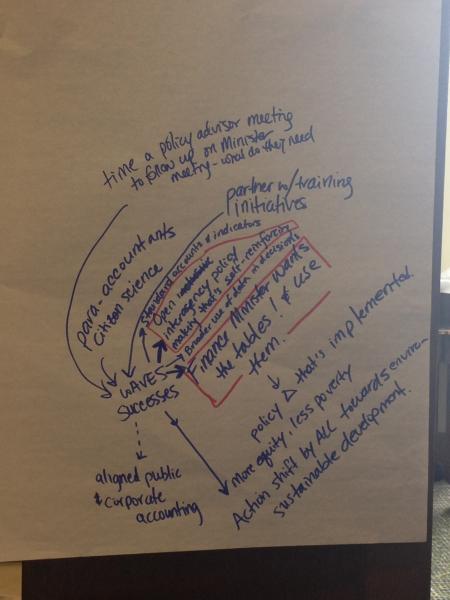 time a policy advisor meeting
to follow up on Minister
meeting - what do they need
partner w/ training
initiatives
para-accountants
citizen science
standard accounts & indicators
Open
interagency policy
making that's self-reinforcing
Broader use of data in decisions
Finance Minister wants
the tables! & use
them.
WAVES
successes
policy Δ that's implemented.
more equity, less poverty
Action shift by ALL towards enviro-
sustainable development.
aligned public
& corporate
accounting